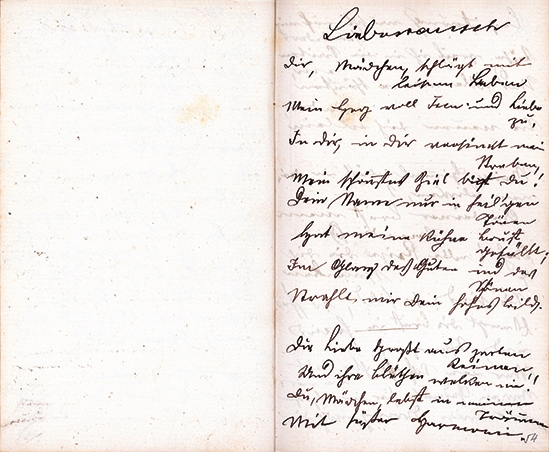 Liebesrausch
Dir, Mädchen, schlägt mit
leisem Beben
Mein Herz voll Treu und Liebe
zu,
In dir, in dir versinkt mein
Streben,
Mein schönstes Ziel bist du!
Dein Name nur in heil'gen
Tönen
Hat meine kühne Brust
gefüllt,
Im Glanz des Guten und des
Schönen
Strahlt mir dein hohes Bild.
Die Liebe sproßt aus zarten
Keimen,
Und ihre Blüthen welken nie!
Du, Mädchen, lebst in meinen
Träumen
Mit süßer Harmonie